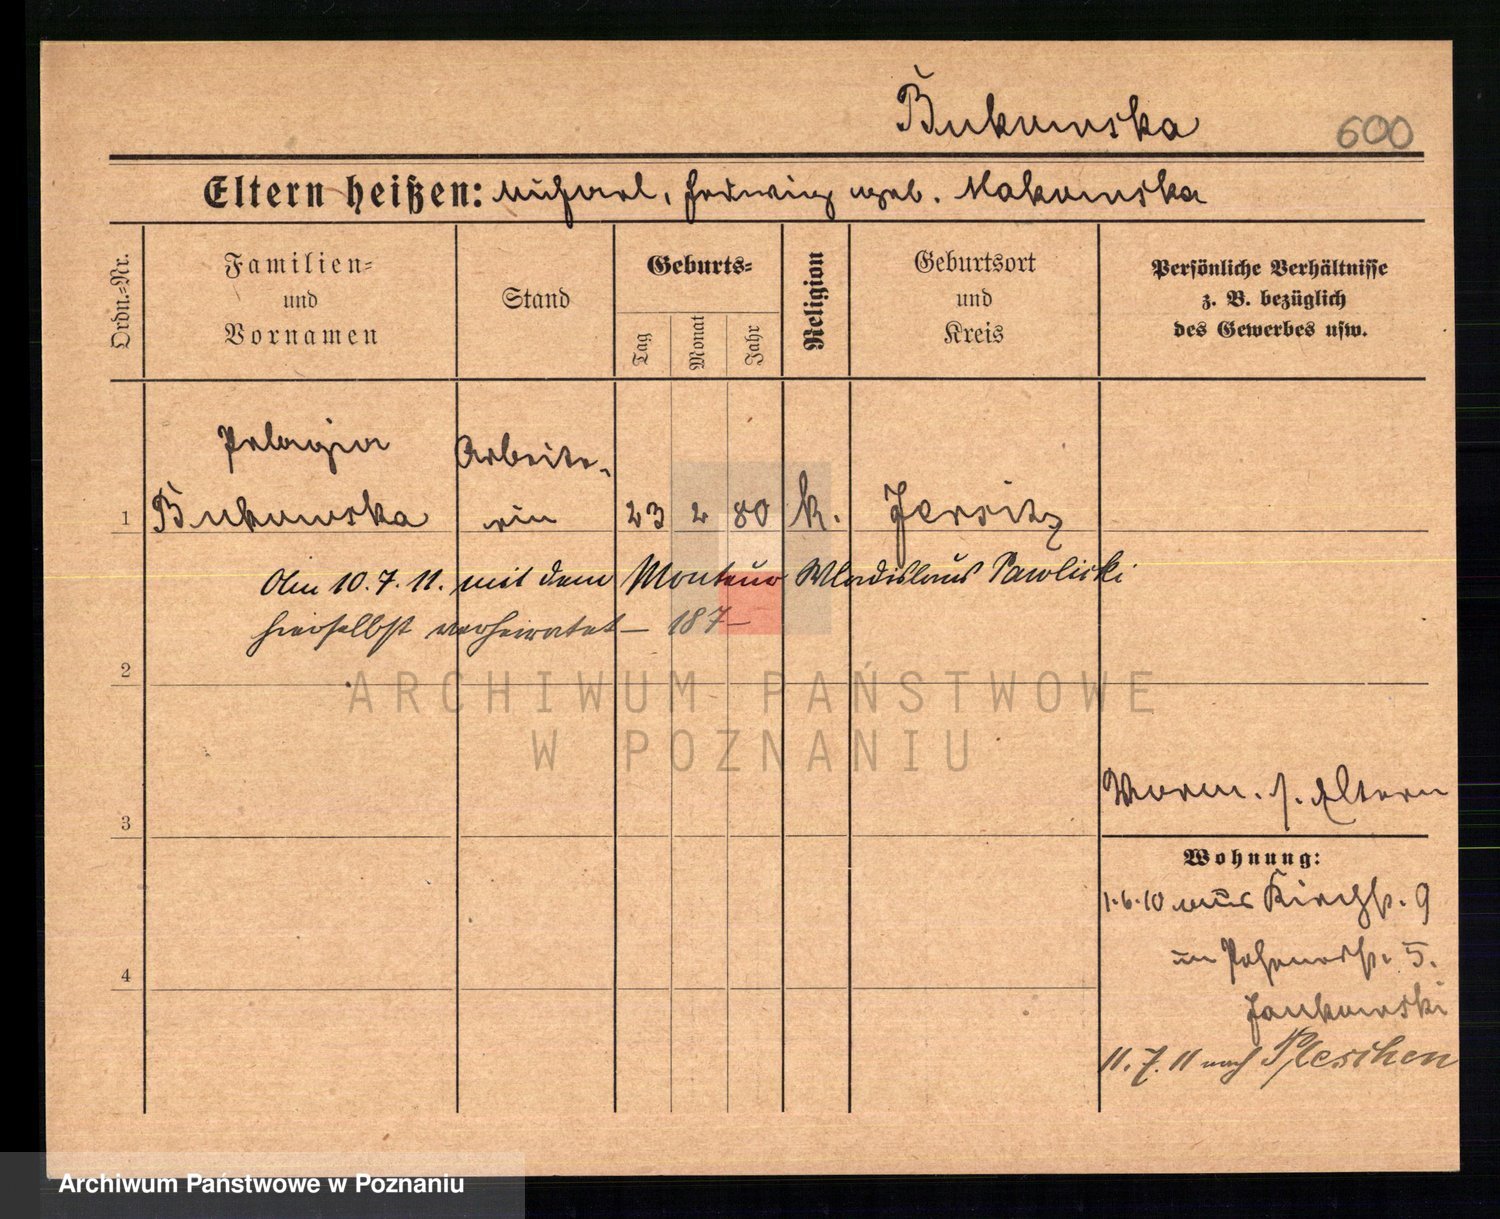 Bukowska 600
Eltern heißen: Michael, Hedwig geb. Makowska
Ordn.-Nr.
Familien- und Vornamen
Stand
Geburts-
Tag
Monat
Jahr
Religion
Geburtsort und Kreis
Persönliche Verhältnisse
z. B. bezüglich
des Gewerbes usw.
Pelagia Arbeite-
1 Bukowska rin 23 2 80 k. Jersitz
Am 10.7.11. mit dem Monteur Wladislaus Pawlicki
hierselbst verheiratet – 187 –
2
ARCHIWUM PAŃSTWOWE
W POZNANIU
Vorm. s. Eltern
3
Wohnung:
1.6.10 aus Kirchstr. 9
in Posenerstr. 5.
4
Jankowski
11.7.11 nach Pleschen
Archiwum Państwowe w Poznaniu